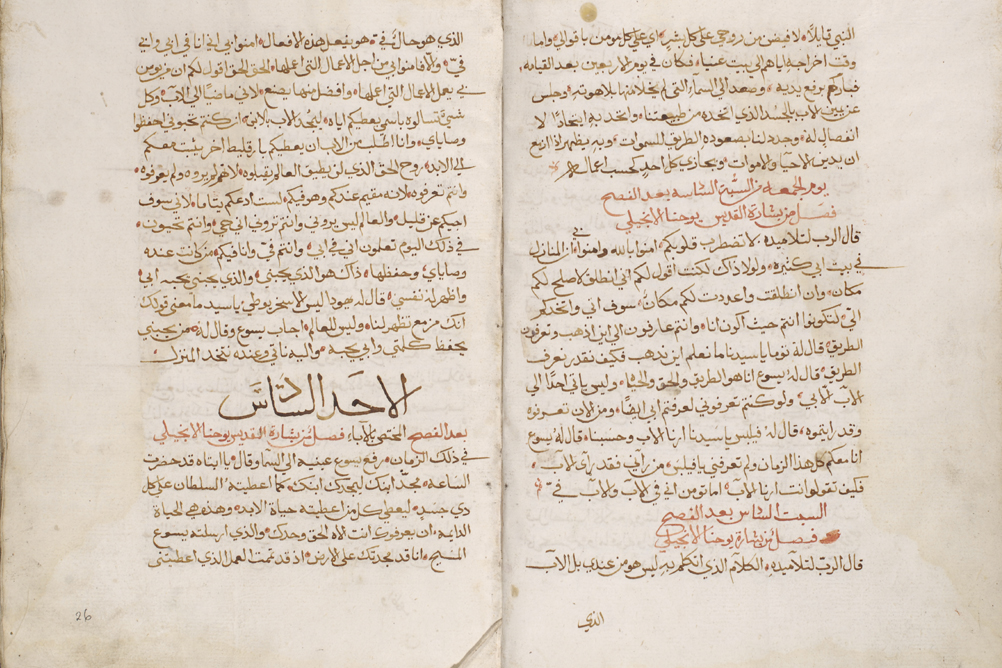 النبي قايلاً، لافيض من روحي على كل بشر، اي على كل مومن باقوالي، واما
وقت اخراجه اياهم الى بيت عنيا، فكان في يوم الاربعين بعد القيامه،
فباركهم برفع يديه، وصعد الى السماء التي لم يخلا منها بلاهوته، وجلس
عن يمين الاب بالجسد الذي اتخذه من طبيعتنا، واتحد به اتحادًا لا
انفصال له، وجدد لنا بصعوده الطريق للسموات، وبه يظهر مرة
ان يدين الاحيا والاموات، ويجازي كل احد كحسب اعماله
يوم الجمعه من السبع السادسه بعد الفصح
فصل من بشارة القديس يوحنا الانجيلي
قال الرب لتلاميذه، لا تضطرب قلوبكم، امنوا بالله وامنوا بي، ان المنازل
في بيت ابي كثيره، ولولا ذاك لكنت اقول لكم اني انطلق لاصلح لكم
مكان، وان انطلقت واعددت لكم مكان، سوف اتي واتخذكم
اليّ، لتكونوا انتم حيث اكون انا، وانتم عارفون الي اين اذهب وتعرفون
الطريق، قال له توما يا سيدنا ما نعلم اين تذهب فكيف نقدر نعرف
الطريق، قال له يسوع انا هو الطريق والحق والحياه، وليس ياتي احدًا الي
الاب الا بي، ولو كنتم تعرفوني لعرفتم ابي ايضًا، ومن الان تعرفونه
وقد رايتموه، قال له فيلبس يا سيدنا ارنا الاب وحسبنا، قال له يسوع
انا معكم كل هذا الزمان ولم تعرفني يا فيلبس، من رآني فقد رآى الاب،
فكيف تقول انت ارنا الاب، اما تومن اني في الاب والاب فيّ،
السبت السادس بعد الفصح
فصل من بشارة يوحنا الانجيلي
قال الرب لتلاميذه، الكلام الذي اتكلم به ليس هو من عندي بل الاب
الذي
الذي هو حالٌ فيّ، هو يفعل هذه الافعال، امنوا بي اني انا في ابي وابي
فيّ، والا فامنوا بي من اجل الاعمال التي اعملها، الحق الحق اقول لكم ان من يومن
بي يعمل الاعمال التي اعملها، وافضل منها يصنع، لاني ماضيًا الي الاب، وكل
شيء تسالوه باسمي يعطيكم اياه، ليتمجد الاب بالابن، ان كنتم تحبوني احفظوا
وصاياي، وانا اطلب من الاب ان يعطيكم بارقليط اخر يثبت معكم
الي الابد، روح الحق الذي لن يطيق العالم ان يقبلوه، لانهم لم يروه ولم يعرفوه،
وانتم تعرفوه، لانه مقيم عندكم وهو فيكم، لست ادعكم يتاما، لاني سوف
اجيكم عن قليل، والعالم ليس يروني وانتم تروني اني حي، وانتم تحيون،
في ذلك اليوم تعلمون اني في ابي، وانتم فيّ، وانا فيكم، من كانت عنده
وصاياي، وحفظها، ذاك هو الذي يحبني، والذي يحبني يحبه ابي،
واظهر له نفسي، قال له يهودا ليس الاسخريوطي يا سيد ما معنى قولك
انك مزمع تظهر لنا، وليس للعالم، اجاب يسوع وقال له، من يحبني
يحفظ كلمتي، وابي يحبه، واليه ناتي وعنده نتخذ المنزل
الاحد السادس
بعد الفصح المختص بالاباء، فصل من بشارة القديس يوحنا الانجيلي
في ذلك الزمان، رفع يسوع عينيه الى السماء وقال، يا ابتاه قد حضرت
الساعه، مجد ابنك ليمجدك ابنك، كما اعطيته السلطان على كل
ذي جسد، ليعطي كل من اعطيته حياة الابد، وهذه هي الحياة
الدايمه، ان يعرفوك انت الاله الحق وحدك، والذي ارسلته يسوع
المسيح، انا قد مجدتك على الارض، اذ قد تممت العمل الذي اعطيتني
26